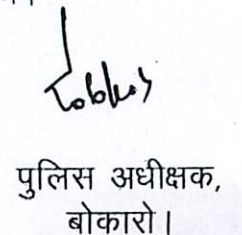 पुलिस अधीक्षक,
बोकारो।